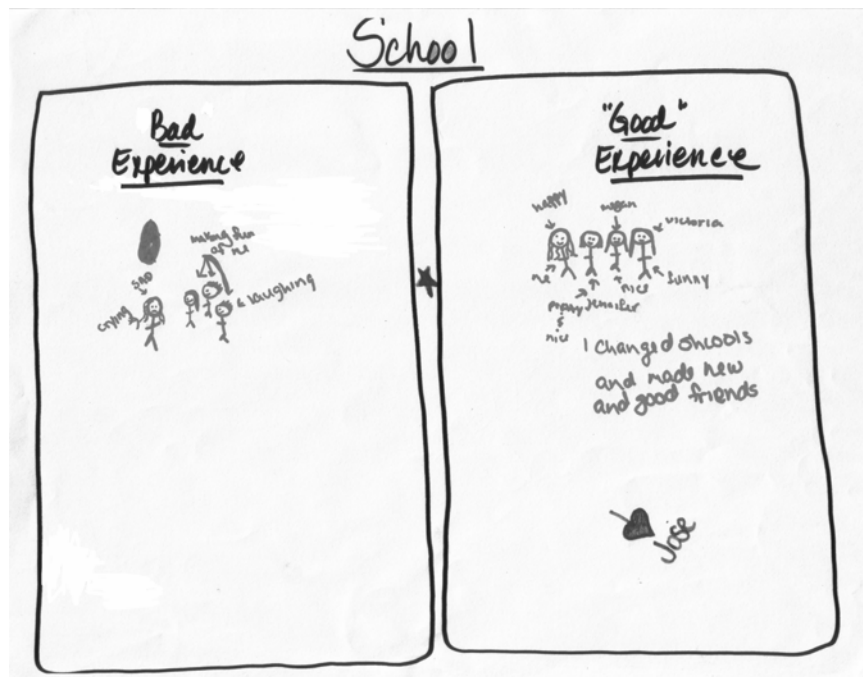 School
Bad
Experience
SAD
crying
making fun
of me
laughing
"Good"
Experience
happy
megan
victoria
me
nice
funny
Jennifer
&
nice
I changed shcools
and made new
and good friends
Jose